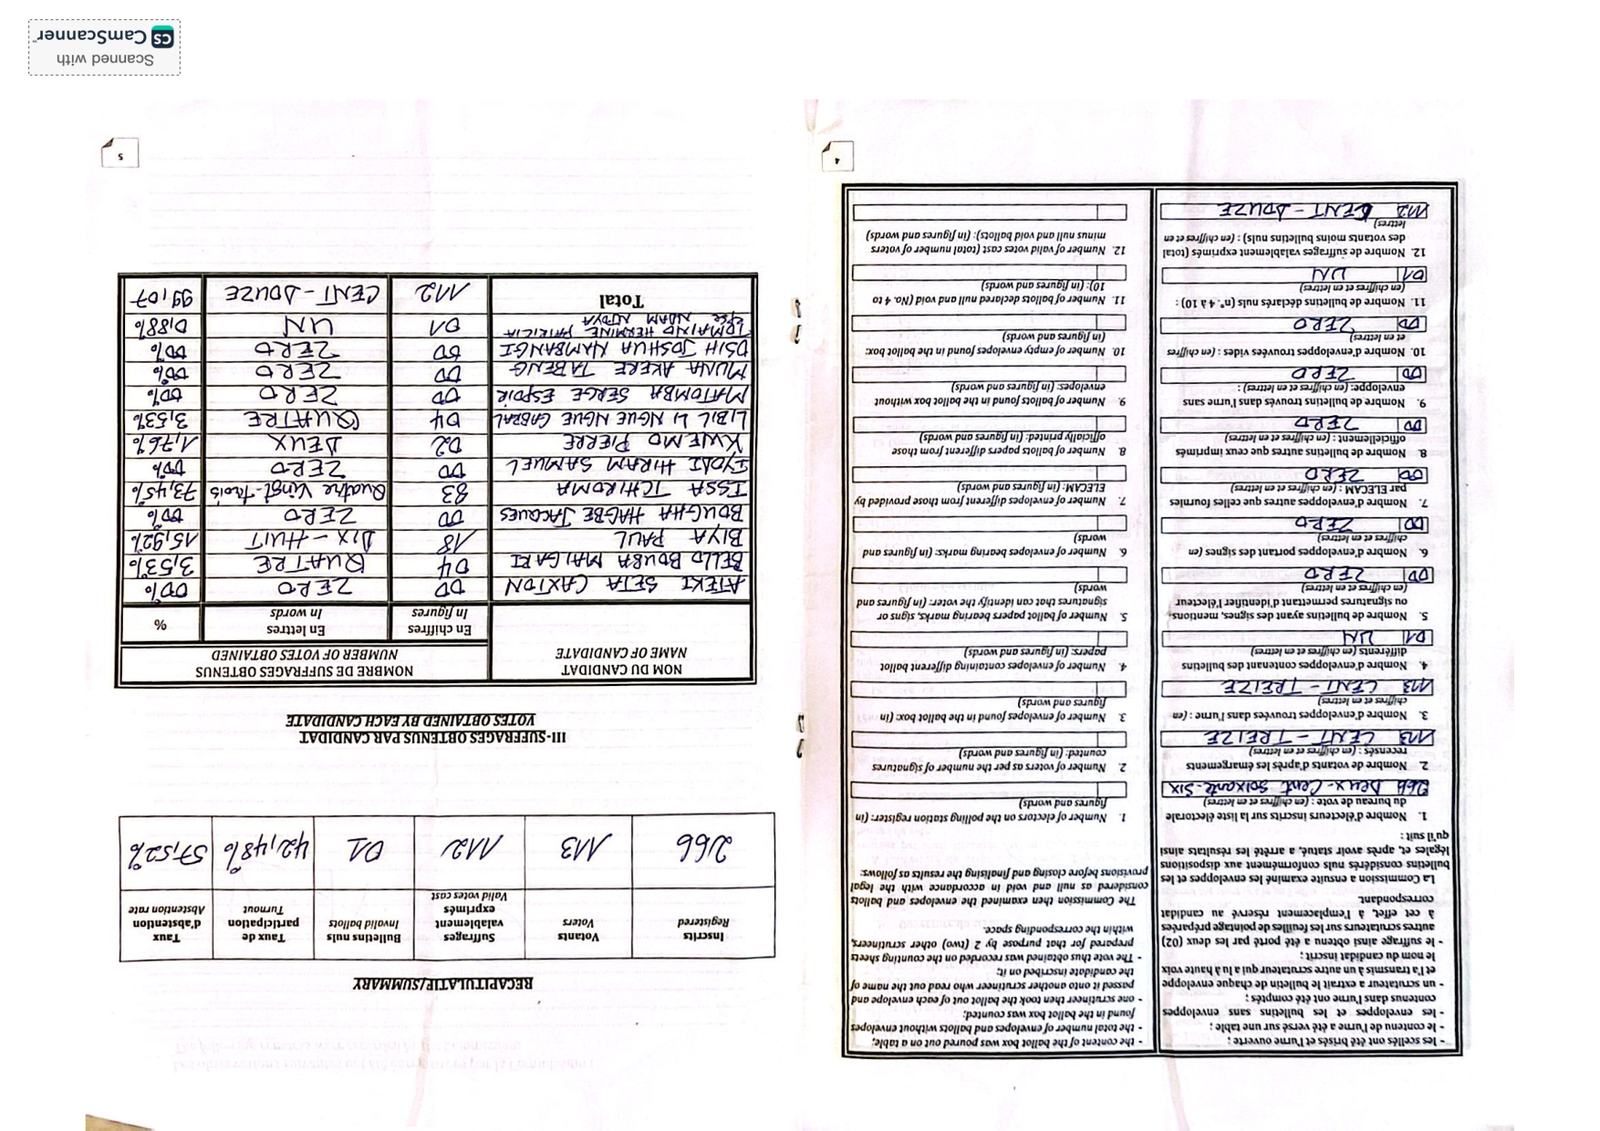 - les scellés ont été brisés et l'urne ouverte ;
- le contenu de l'urne a été versé sur une table ;
- les enveloppes et les bulletins sans enveloppes
contenus dans l'urne ont été comptés ;
- un scrutateur a extrait le bulletin de chaque enveloppe
et l'a transmis à un autre scrutateur qui a lu à haute voix
le nom du candidat inscrit ;
- le suffrage ainsi obtenu a été porté par les deux (02)
autres scrutateurs sur les feuilles de pointage préparées
à cet effet, à l'emplacement réservé au candidat
correspondant.
La Commission a ensuite examiné les enveloppes et les
bulletins considérés nuls conformément aux dispositions
légales et, après avoir statué, a arrêté les résultats ainsi
qu'il suit :
1. Nombre d'électeurs inscrits sur la liste électorale
du bureau de vote : (en chiffres et en lettres)
266 Deux-Cent Soixante-Six
2. Nombre de votants d'après les émargements
recensés : (en chiffres et en lettres)
113 CENT-TREIZE
3. Nombre d'enveloppes trouvées dans l'urne : (en
chiffres et en lettres)
113 CENT-TREIZE
4. Nombre d'enveloppes contenant des bulletins
différents (en chiffres et en lettres)
01 UN
5. Nombre de bulletins ayant des signes, mentions
ou signatures permettant d'identifier l'électeur
(en chiffres et en lettres)
00 ZERO
6. Nombre d'enveloppes portant des signes (en
chiffres et en lettres)
00 ZERO
7. Nombre d'enveloppes autres que celles fournies
par ELECAM : (en chiffres et en lettres)
00 ZERO
8. Nombre de bulletins autres que ceux imprimés
officiellement : (en chiffres et en lettres)
00 ZERO
9. Nombre de bulletins trouvés dans l'urne sans
enveloppe: (en chiffres et en lettres) :
00 ZERO
10. Nombre d'enveloppes trouvées vides : (en chiffres
et en lettres)
00 ZERO
11. Nombre de bulletins déclarés nuls (n°. 4 à 10) :
(en chiffres et en lettres)
01 UN
12. Nombre de suffrages valablement exprimés (total
des votants moins bulletins nuls) : (en chiffres et en
lettres)
112 CENT-DOUZE
- the content of the ballot box was poured out on a table;
- the total number of envelopes and ballots without envelopes
found in the ballot box was counted;
- one scrutineer then took the ballot out of each envelope and
passed it onto another scrutineer who read out the name of
the candidate inscribed on it;
- The vote thus obtained was recorded on the counting sheets
prepared for that purpose by 2 (two) other scrutineers,
within the corresponding space.
The Commission then examined the envelopes and ballots
considered as null and void in accordance with the legal
provisions before closing and finalising the results as follows:
1. Number of electors on the polling station register: (in
figures and words)
2. Number of voters as per the number of signatures
counted: (in figures and words)
3. Number of envelopes found in the ballot box: (in
figures and words)
4. Number of envelopes containing different ballot
papers: (in figures and words)
5. Number of ballot papers bearing marks, signs or
signatures that can identify the voter: (in figures and
words)
6. Number of envelopes bearing marks: (in figures and
words)
7. Number of envelopes different from those provided by
ELECAM: (in figures and words)
8. Number of ballots papers different from those
officially printed: (in figures and words)
9. Number of ballots found in the ballot box without
envelopes: (in figures and words)
10. Number of empty envelopes found in the ballot box:
(in figures and words)
11. Number of ballots declared null and void (No. 4 to
10): (in figures and words)
12. Number of valid votes cast (total number of voters
minus null and void ballots): (in figures and words)
4
RECAPITULATIF/SUMMARY
Inscrits Registered | Votants Voters | Suffrages valablement exprimés Valid votes cast | Bulletins nuls Invalid ballots | Taux de participation Turnout | Taux d'abstention Abstention rate
266 113 112 01 42,48% 57,52%
III- SUFFRAGES OBTENUS PAR CANDIDAT
VOTES OBTAINED BY EACH CANDIDATE
NOM DU CANDIDAT NOMBRE DE SUFFRAGES OBTENUS
NAME OF CANDIDATE NUMBER OF VOTES OBTAINED
En chiffres En lettres %
In figures In words
ATEKI SETA CAXTON 00 ZERO 00%
BELLO BOUBA MAIGARI 04 QUATRE 3,53%
BIYA PAUL 18 DIX-HUIT 15,92%
BOUGHA HAGBE JACQUES 00 ZERO 00%
ISSA TCHIROMA 83 Quatre Vingt-trois 73,45%
IYODI HIRAM SAMUEL 00 ZERO 00%
KWEMO PIERRE 02 DEUX 1,76%
LIBII LI NGUE NGUE CABRAL 04 QUATRE 3,53%
MATOMBA SERGE ESPOIR 00 ZERO 00%
MUNA AKERE TABENG 00 ZERO 00%
OSIH JOSHUA NAMBANGI 00 ZERO 00%
TOMAINO HERMINE PATRICIA
EPSE NDAM NJOYA 01 UN 0,88%
Total 112 CENT-DOUZE 99,07
5
Scanned with
CamScanner